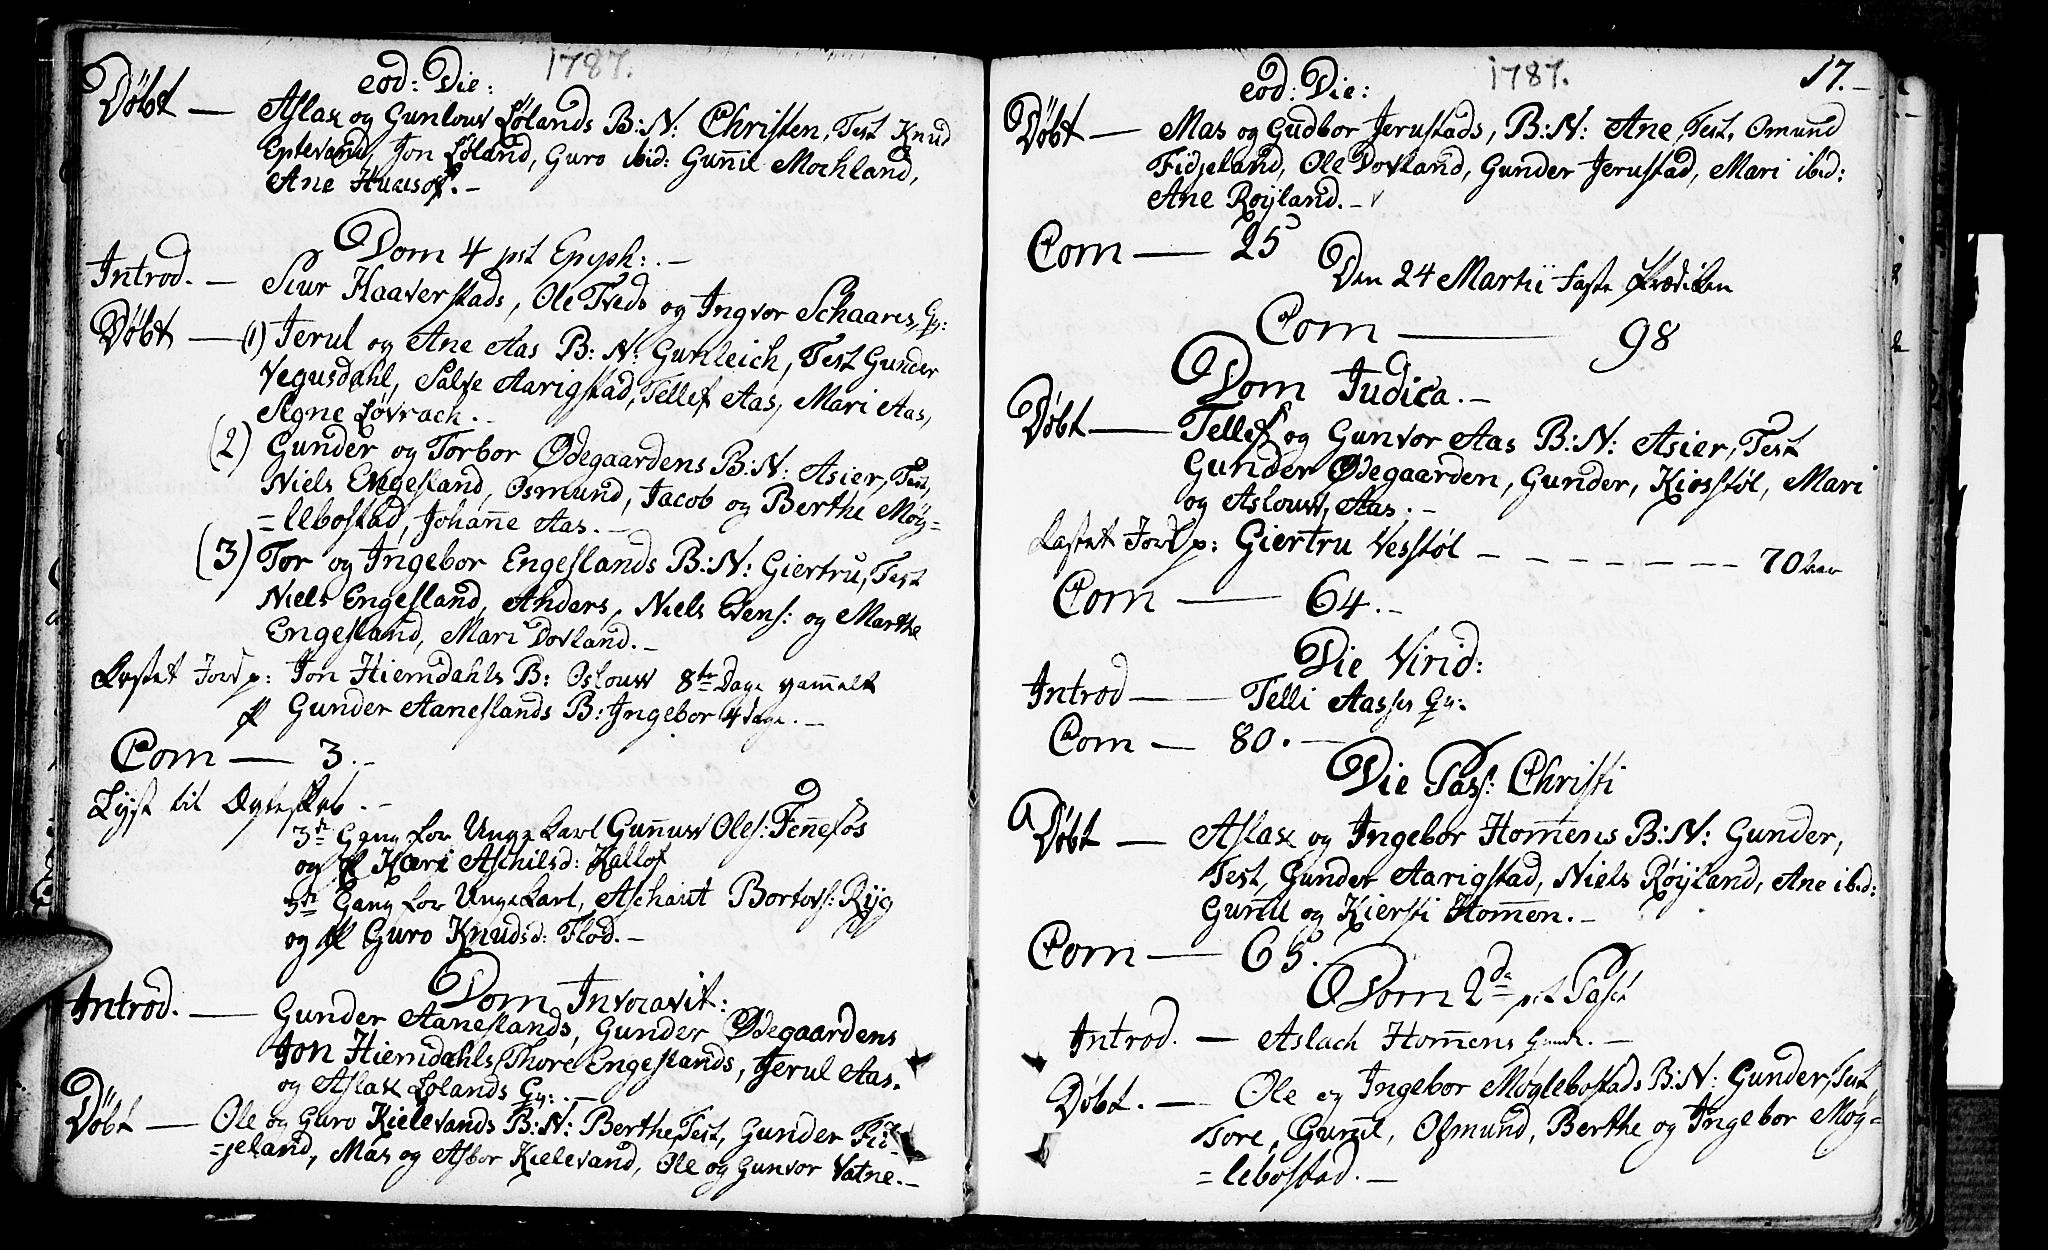 1787.
eod: Die:
Døbt — Aslak og Gunlouv Lølands B: N: Christen, Test Knud
Eptevand, Jon Løland, Guro ibid: Gun̄il Mochland,
Ane
Dom 4 pst Epyph: . —
Introd. — Siur Haaverstads, Ole Tveds og Ingvor Schaares, Qv:
Døbt — (1) Jerul og Ane Aas B: N: Gunleich, Test Gunder
Vegusdahl, Salve Aarigstad, Tellef Aas, Mari Aas,
Segne Løvrach. —
(2) Gunder og Torbor Ødegaardens B: N: Asier, Test,
Niels Engesland, Osmund, Jacob og Berthe Møy=
=lebostad, Johan̄e Aas. —
(3) Tor og Ingebor Engeslands B: N: Giertru, Test
Niels Engesland, Anders, Niels Evens: og Marthe
Engesland, Mari Dovland. —
Kastet Jord p: Jon Hiemdahls B: Oslouv 8te Dage gam̄elt
Gunder Aaneslands B: Ingebor 4 Dage. —
Com — 3. —
Lyst til Ægteskab. —
3die Gang for Unge Karl Gun̄uv Oles: Fen̄efos
og Kari Aschilsd: Kallof
3die Gang for Unge Karl, Aschaut Bortovs: Ryg
og Guro Knudsd: Flod. —
Dom Invocavit:
Introd. — Gunder Aaneslands, Gunder Ødegaardens
Jon Hiemdahls, Thore Engeslands, Jerul Aas.
og Aslak Lølands Qv: . —
Døbt — Ole og Guro Kielevands B: N: Berthe, Test, Gunder Fid=
=jeland, Mas og Asbor Kielevand, Ole og Gunvor Vatne. —
1787.
17. —
eod: Die:
Døbt — Mas og Gudbor Jerustads, B: N: Ane, Test, Osmund
Fidjeland, Ole Dovland, Gunder Jerustad, Mari ibid:
Ane Røyland. —
Com — 25
Den 24 Martii Faste Prædiken
Com — 98
Dom Judica. —
Døbt — Tellef og Gunvor Aas B: N: Asier, Test
Gunder Ødegaarden, Gunder, Kiosstøl, Mari
og Aslouv, Aas. —
Kastet Jord p: Giertru Vesstøl — — — — — — — 70 Aar
Com — 64. —
Die Virid:
Introd — Telli Aasses Qv:
Com — 80. —
Die Pass: Christi
Døbt — Aslak og Ingebor Hom̄ens B: N: Gunder,
Test, Gunder Aarigstad, Niels Røyland, Ane ibid:
Gun̄il og Kiersti Hom̄en. —
Com — 65.
Dom 2da pst Pasch
Introd. — Aslach Hom̄ens . —
Døbt. — Ole og Ingebor Møglebostads B: N: Gunder, Test
Tore, Gun̄il, Osmund, Berthe og Ingebor Møy=
=lebostad. —